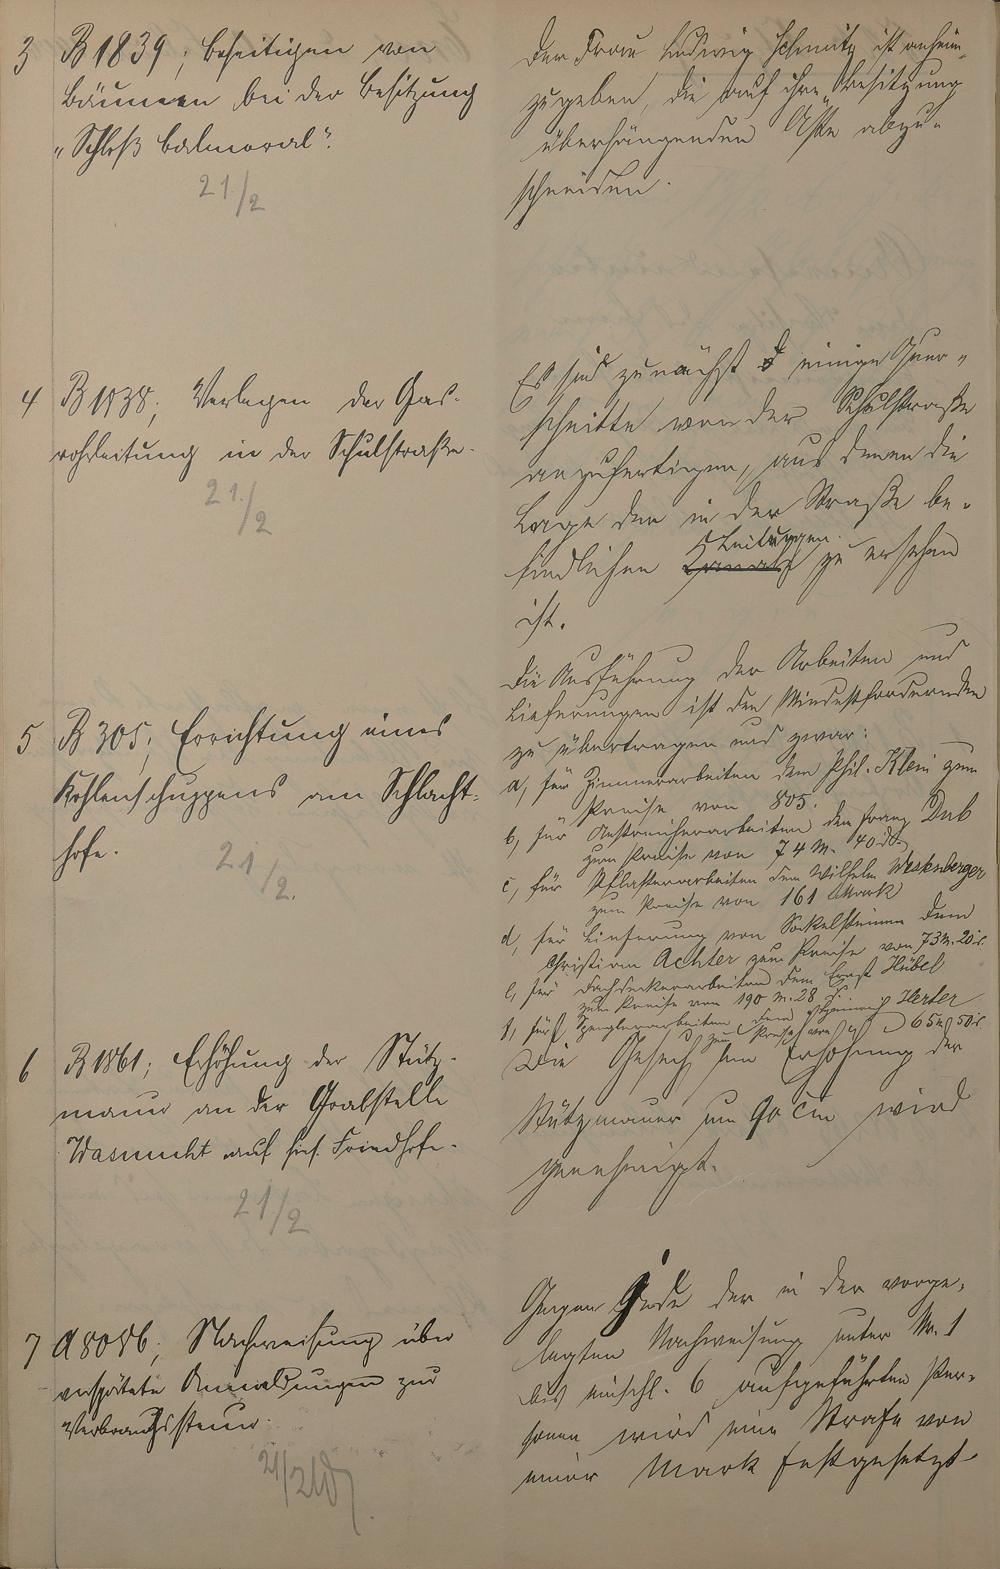 3 B 1839; Beseitigen von
Bäumen bei der Besitzung
"Schloß Balmoral".
21/2
Der Frau Ludwig Schmitz ist anheim-
zugeben, die auf ihre Besitzung
überhängenden Äste abzu-
schneiden.
4 B 1838; Verlegen der Gas-
rohrleitung in der Schulstraße.
21./2
Es sind zunächst einige Quer-
schnitte von der Schulstraße
anzufertigen, aus denen die
Lage der in der Straße be-
Leitungen
findlichen Kanal zu ersehen
ist.
5 B 305; Errichtung eines
Kohlenschuppens am Schlacht-
hofe.
21/2.
Die Ausführung der Arbeiten und
Lieferungen ist den Mindestfordernden
zu übertragen und zwar:
a, für Zimmerarbeiten dem Phil. Klein zum
Preise von 805.
b, für Anstreicherarbeiten dem Franz Dub
zum Preise von 74 M. 40 d.
c, für Pflasterarbeiten dem Wilhelm Weskenberger
zum Preise von 161 Mark
d, für Lieferung von Sockelsteinen dem
Christian Achter zum Preise von 73 M. 20 d.
e, für Dachdeckerarbeiten dem Ernst Hübel
zum Preise von 190 M. 28 d.
f, für Spenglerarbeiten dem Heinrich Herter
zum Preise von 65 M 50 d.
6 B 1861; Erhöhung der Stütz-
mauer an der Grabstelle
Wasmucht auf hies. Friedhofe.
21/2
Die Gesuch um Erhöhung der
Stützmauer um 90 cm wird
genehmigt.
7 A 8086; Nachweisung über
verspätete Anmeldungen zur
Verbrauchssteuer.
21/2
Gegen Jede der in der vorge-
legten Nachweisung unter Nr. 1
bis einschl. 6 aufgeführten Per-
sonen wird eine Strafe von
einer Mark festgesetzt